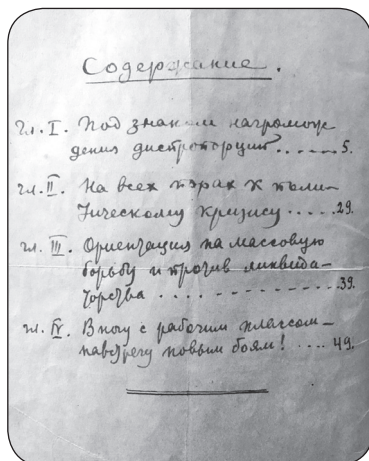 Содержание.
гл. I. Под знаком нагромож
дения диспропорций......5.
гл. II. На всех парах к поли-
тическому кризису.....29.
гл. III. Ориентация на массовую
борьбу и против ликвида-
торства .... - - - - - - - - 39.
гл. IV. В ногу с рабочим классом -
навстречу новым боям! .... 49.